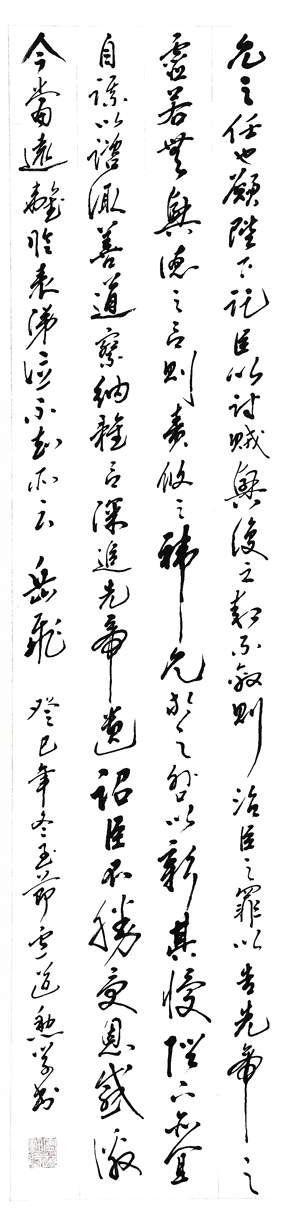 允之任也願陛下託臣以討賊興復之效不效則治臣之罪以告先帝之
靈若無興德之言則責攸之禕允等之咎以彰其慢陛下亦宜
自謀以諮諏善道察納雅言深追先帝遺詔臣不勝受恩感激
今當遠離臨表涕泣不知所云 岳飛 癸巳年冬至節雲道勳學書